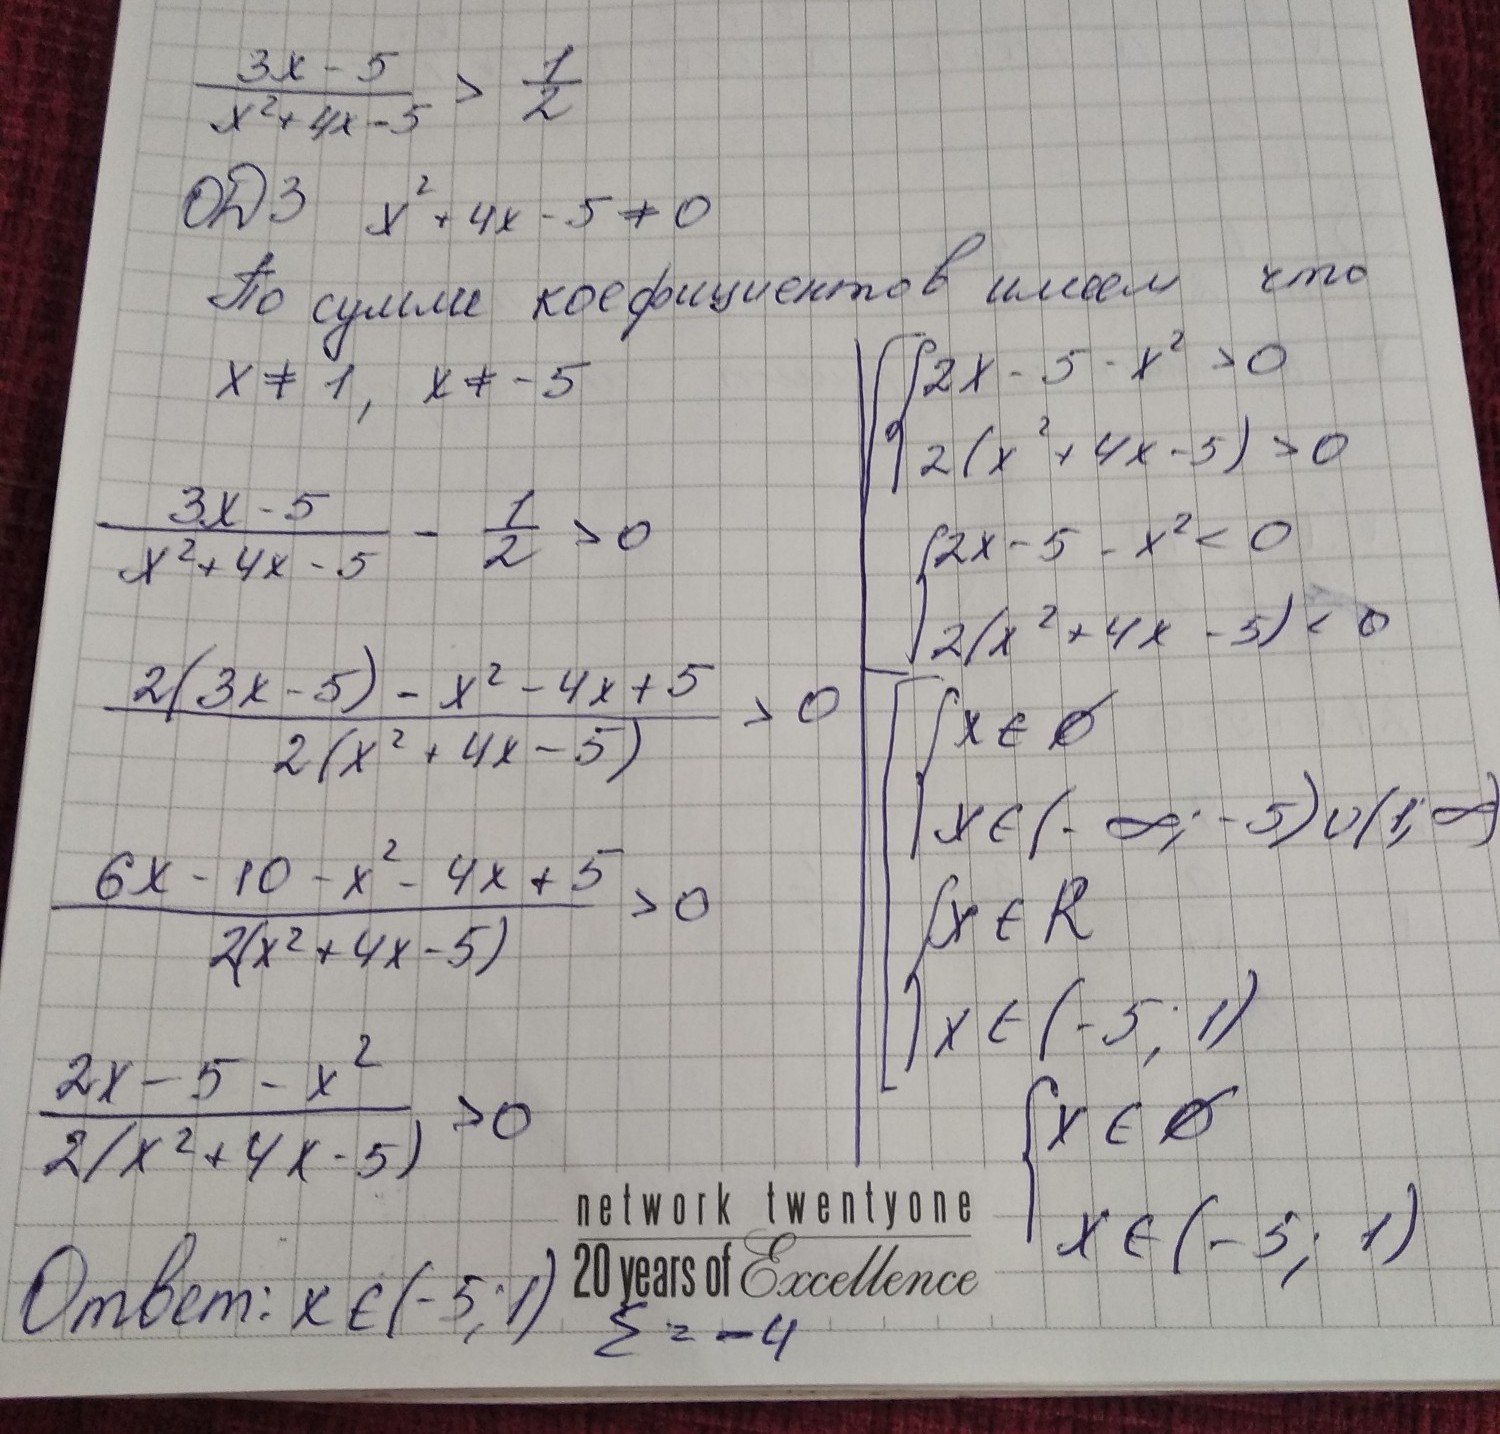 (3x - 5)/(x² + 4x - 5) > 1/2
ОДЗ x² + 4x - 5 ≠ 0
По сумме коефициентов имеем что
x ≠ 1, x ≠ -5
(3x - 5)/(x² + 4x - 5) - 1/2 > 0
(2(3x - 5) - x² - 4x + 5)/(2(x² + 4x - 5)) > 0
(6x - 10 - x² - 4x + 5)/(2(x² + 4x - 5)) > 0
(2x - 5 - x²)/(2(x² + 4x - 5)) > 0
2x - 5 - x² > 0
2(x² + 4x - 5) > 0
2x - 5 - x² < 0
2(x² + 4x - 5) < 0
x ∈ ∅
x ∈ (-∞; -5) ∪ (1; ∞)
x ∈ R
x ∈ (-5; 1)
x ∈ ∅
x ∈ (-5; 1)
Ответ: x ∈ (-5; 1)
Σ = -4
network twentyone
20 years of Excellence